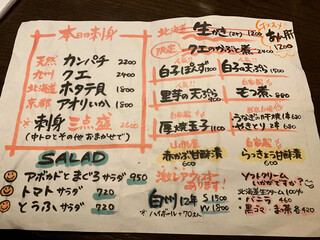 本日の刺身
天然 カンパチ 2200
九州 クエ 2400
北海道 ホタテ貝 1800
京都 アオリいか 1800
刺身三点盛 2600
(中トロとその他おまかせで)
SALAD
アボカドとまぐろサラダ 950
トマトサラダ 720
とうふサラダ 720
北海道 生がき
オススメ
あん肝 1200
限定 クエのかぶと煮 2400
白子ぽんず
白子天ぷら
里芋の天ぷら
もつ煮 880
厚焼玉子 1100
うなぎの肝焼
やきとり 2本 680
赤かぶ甘酢漬
らっきょう甘酢漬
あります!
白州12年 S 1500
W 1800
ハイボール+70
ソフトクリーム
いかがですか?
北海道生クリーム100%
バニラ 460
黒ゴマ・お茶 各420